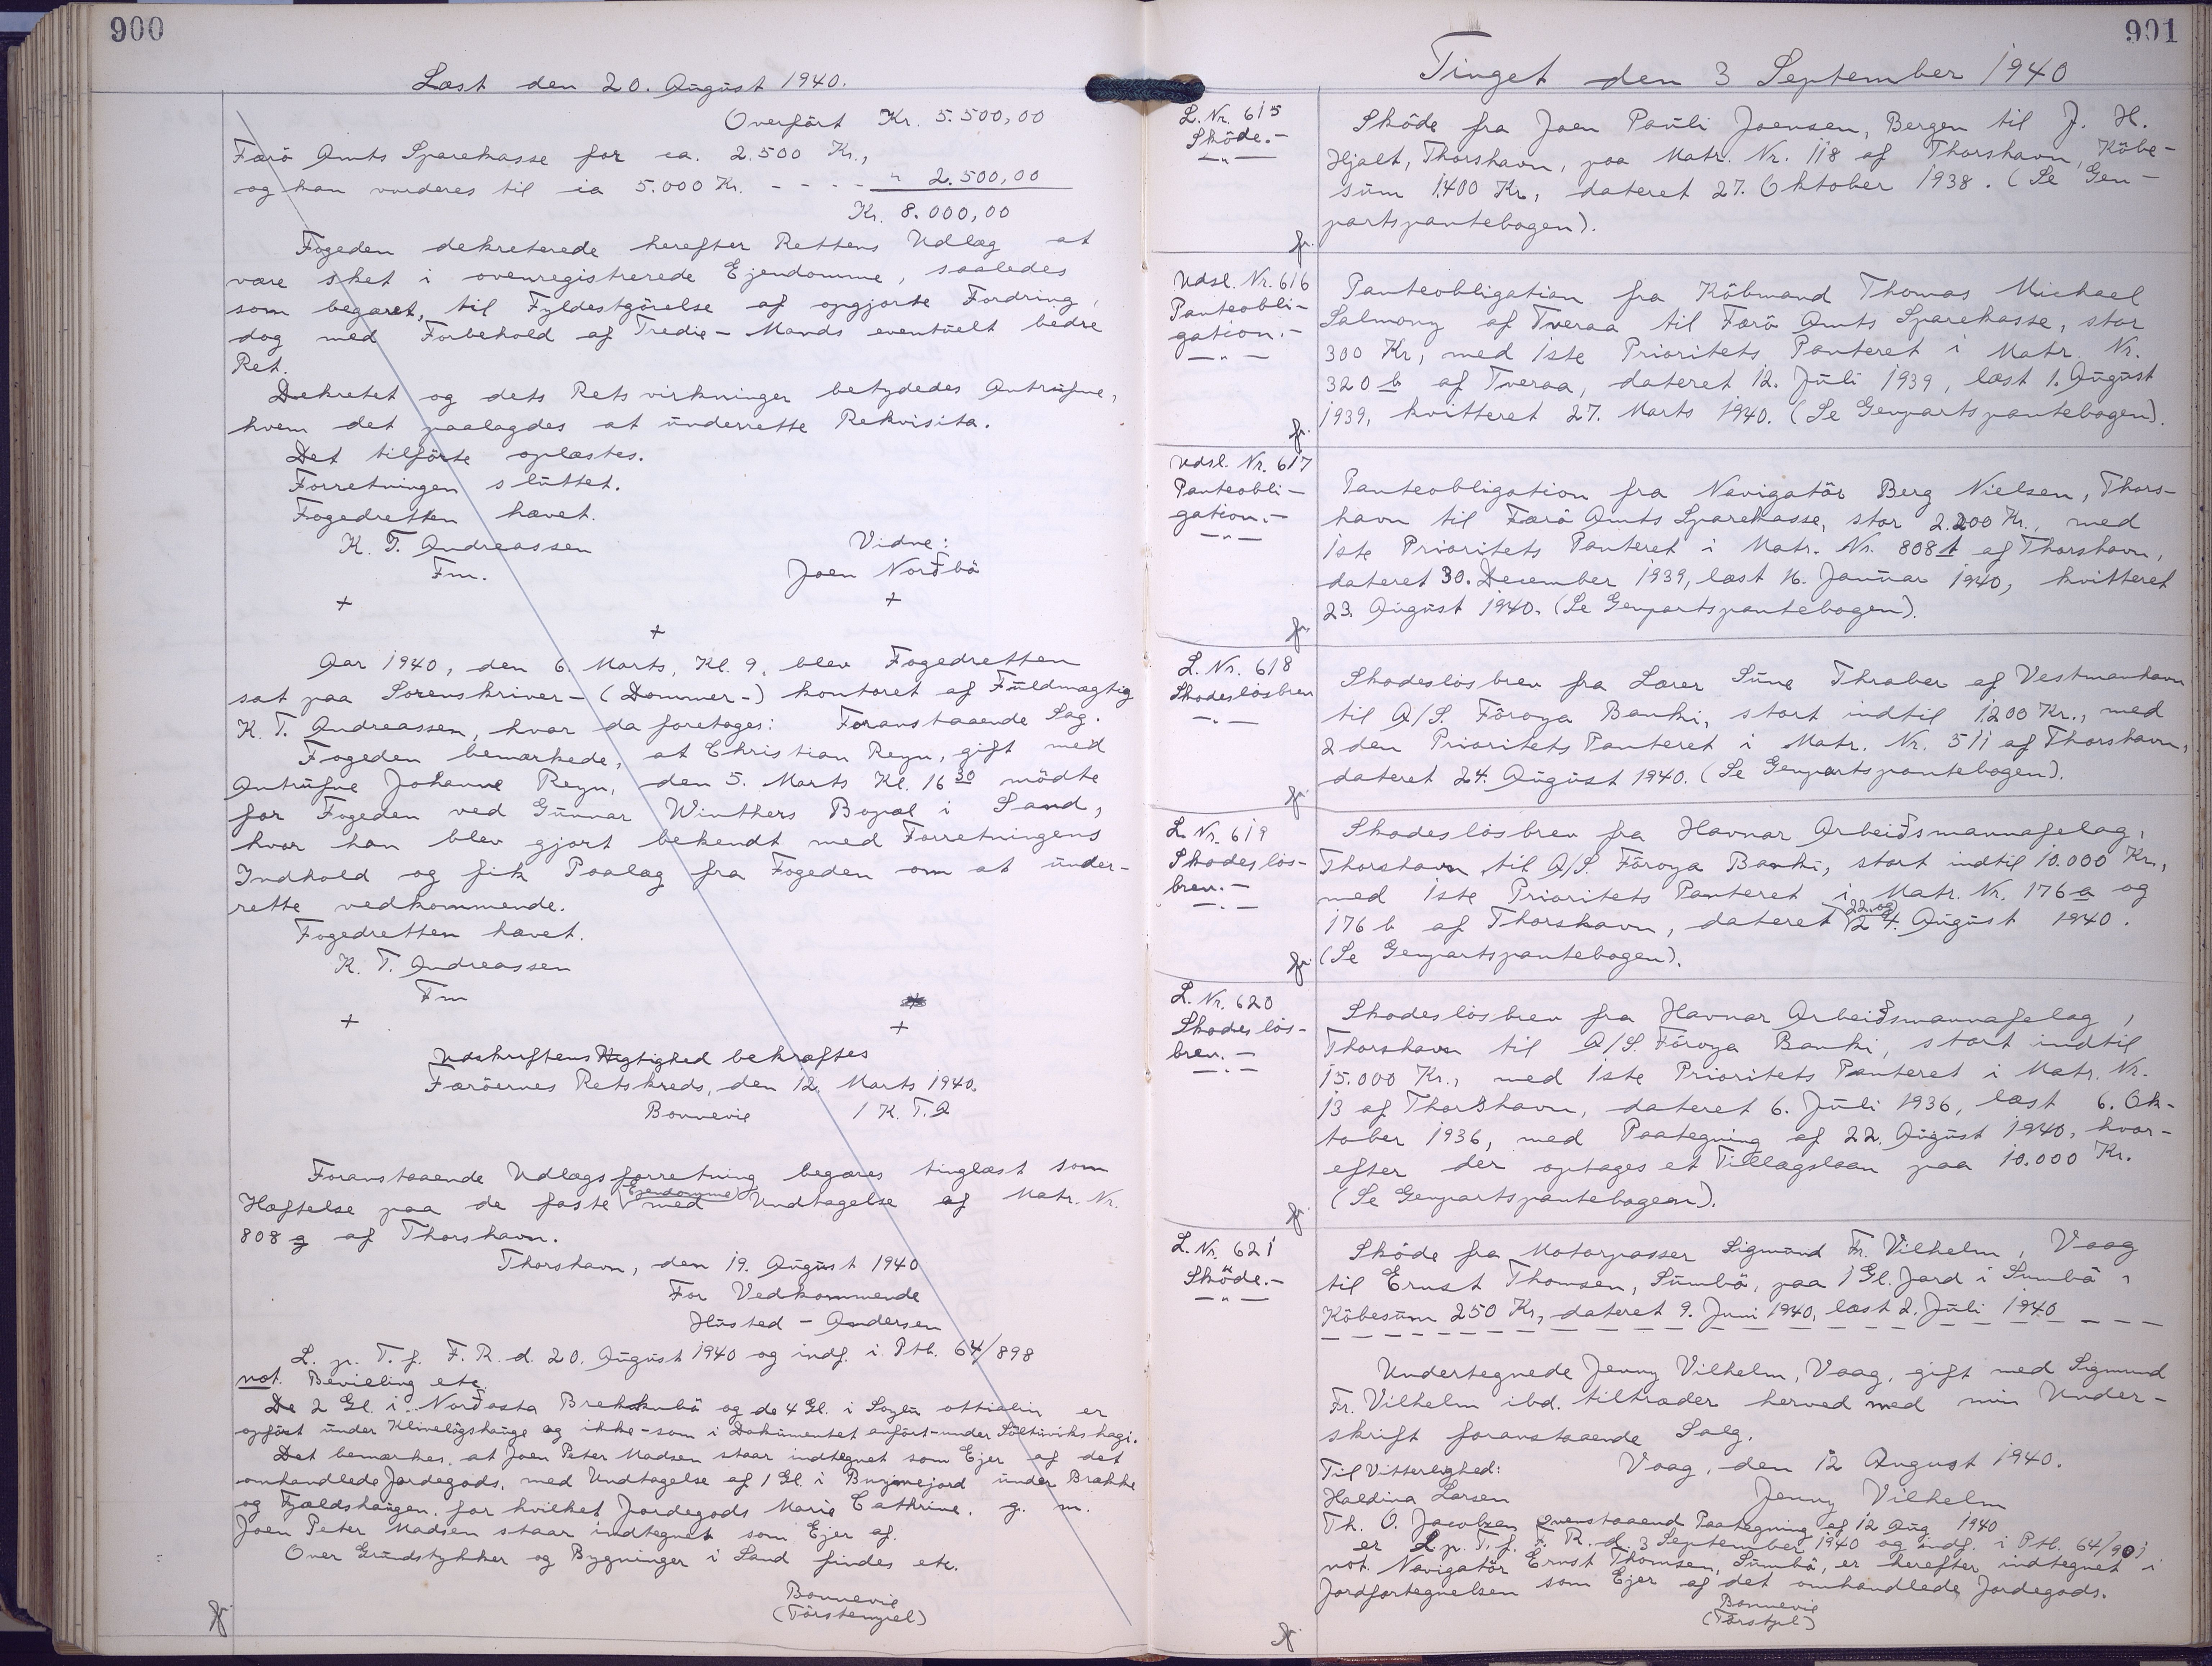 900
Læst den 20. August 1940.
Overført Kr. 5.500,00
Færö Amts Sparekasse for ca. 2.500 Kr.,
og han vurderes til ia 5.000 Kr. - - - - " 2.500,00
Kr. 8.000,00
Fogeden dekreterede herefter Rettens Udlæg at
være sket i ovenregistrerede Ejendomme, saaledes
som begæret, til Fyldestgörelse af opgjorte Fordring,
dog med Forbehold af Tredie- Mands eventuelt bedre
Ret.
Dekretet og dets Retsvirkninger betydedes Antrufne,
hvem det paalagdes at underrette Rekvisita.
Det tilförte oplæstes.
Forretningen sluttet.
Fogedretten hævet.
K. T. Andreassen
Fm.
Vidne:
Joen Norðbö
+ +
+
Aar 1940, den 6. Marts, Kl. 9, blev Fogedretten
sat paa Sorenskriver- (Dommer-) kontoret af Fuldmægtig
K. T. Andreassen, hvor da foretoges: Foranstaaende Sag.
Fogeden bemærkede, at Christian Reyn, gift med
Antrufne Johanne Reyn, den 5. Marts Kl. 16 30 mödte
for Fogeden ved Gunnar Winthers Bopæl i Sand,
hvor han blev gjort bekendt med Forretningens
Indhold og fik Paalæg fra Fogeden om at under-
rette vedkommende.
Fogedretten hævet.
K. T. Andreassen
Fm
+ +
Udskriftens Rigtighed bekræftes
Færöernes Retskreds, den 12. Marts 1940.
Bonnevie / K. T. A
Foranstaaende Udlægsforretning begæres tinglæst som
Hæftelse paa de faste Ejendomme med Undtagelse af Matr. Nr.
808 g af Thorshavn.
Thorshavn, den 19. August 1940
For Vedkommende
Husted - Andersen
L. p. T. f. F. R. d. 20. August 1940 og indf. i Ptb. 64/898
not. Bevilling etc.
De 2 Gl. i Norðasta Brekkubö og de 4 Gl. i er
opfört under og ikke-som i Dokumentet anfört-under
Det bemærkes, at Joen Peter Madsen staar indtegnet som Ejer af det
omhandlede Jordegods, med Undtagelse af 1 Gl. i under Brekke
og Fjældshaugen, for hvilket Jordegods Marie Cathrine, g. m.
Joen Peter Madsen staar indtegnet som Ejer af.
Over Grundstykker og Bygninger i Sand findes etc.
Bonnevie
(Törstempel)
901
Tinget den 3 September 1940
L. Nr. 615
Sköde.-
Sköde fra Joen Pauli Joensen, Bergen til J. H.
Hjalt, Thorshavn, paa Matr. Nr. 118 af Thorshavn, Köbe-
sum 1.400 Kr., dateret 27. Oktober 1938. (Se Gen-
partspantebogen).
Udsl. Nr. 616
Panteobli-
gation.-
Panteobligation fra Köbmand Thomas Michael
Salmony af Tveraa til Færö Amts Sparekasse, stor
300 Kr., med 1ste Prioritets Panteret i Matr. Nr.
320 b af Tveraa, dateret 12. Juli 1939, læst 1. August
1939, kvitteret 27. Marts 1940. (Se Genpartspantebogen).
Udsl. Nr. 617
Panteobli-
gation.-
Panteobligation fra Navigatör Berg Nielsen, Thors-
havn til Færö Amts Sparekasse, stor 2.200 Kr., med
1ste Prioritets Panteret i Matr. Nr. 808 t af Thorshavn,
dateret 30. December 1939, læst 16. Januar 1940, kvitteret
23. August 1940. (Se Genpartspantebogen).
L. Nr. 618
Skadeslösbrev
Skadeslösbrev fra Lærer Sune Thraber af Vestmanhavn
til A/S. Föroya Banki, stort indtil 1.200 Kr., med
2den Prioritets Panteret i Matr. Nr. 511 af Thorshavn,
dateret 24. August 1940. (Se Genpartspantebogen).
L. Nr. 619
Skadeslös-
brev.-
Skadeslösbrev fra Havnar Arbeiðsmannafelag,
Thorshavn til A/S. Föroya Banki, stort indtil 10.000 Kr.,
med 1ste Prioritets Panteret i Matr. Nr. 176 a og
176 b af Thorshavn, dateret 22. og 24. August 1940.
(Se Genpartspantebogen).
L. Nr. 620
Skadeslös-
brev.-
Skadeslösbrev fra Havnar Arbeiðsmannafelag,
Thorshavn til A/S. Föroya Banki, stort indtil
15.000 Kr., med 1ste Prioritets Panteret i Matr. Nr.
13 af Thorshavn, dateret 6. Juli 1936, læst 6. Ok-
tober 1936, med Paategning af 22. August 1940, hvor-
efter der optages et Tillægslaan paa 10.000 Kr.
(Se Genpartspantebogen).
L. Nr. 621
Sköde.-
Sköde fra Motorpasser Sigmund Fr. Vilhelm, Vaag
til Ernst Thomsen, Sumbö, paa 1 Gl. Jord i Sumbö,
Köbesum 250 Kr., dateret 9. Juni 1940, læst 2. Juli 1940
Undertegnede Jenny Vilhelm, Vaag, gift med Sigmund
Fr. Vilhelm ibd. tiltræder herved med min Under-
skrift foranstaaende Salg.
Til Vitterlighed: Vaag, den 12 August 1940.
Haldina Larsen Jenny Vilhelm
Th. O. Jacobsen Ovenstaaend Paategning af 12 Aug 1940
er L. p. T. f. F. R. d. 3 September 1940 og indf. i Ptb. 64/901
not. Navigatör Ernst Thomsen, Sumbö, er herefter indtegnet i
Jordfortegnelsen som Ejer af det omhandlede Jordegods.
Bonnevie
(Törstpl)